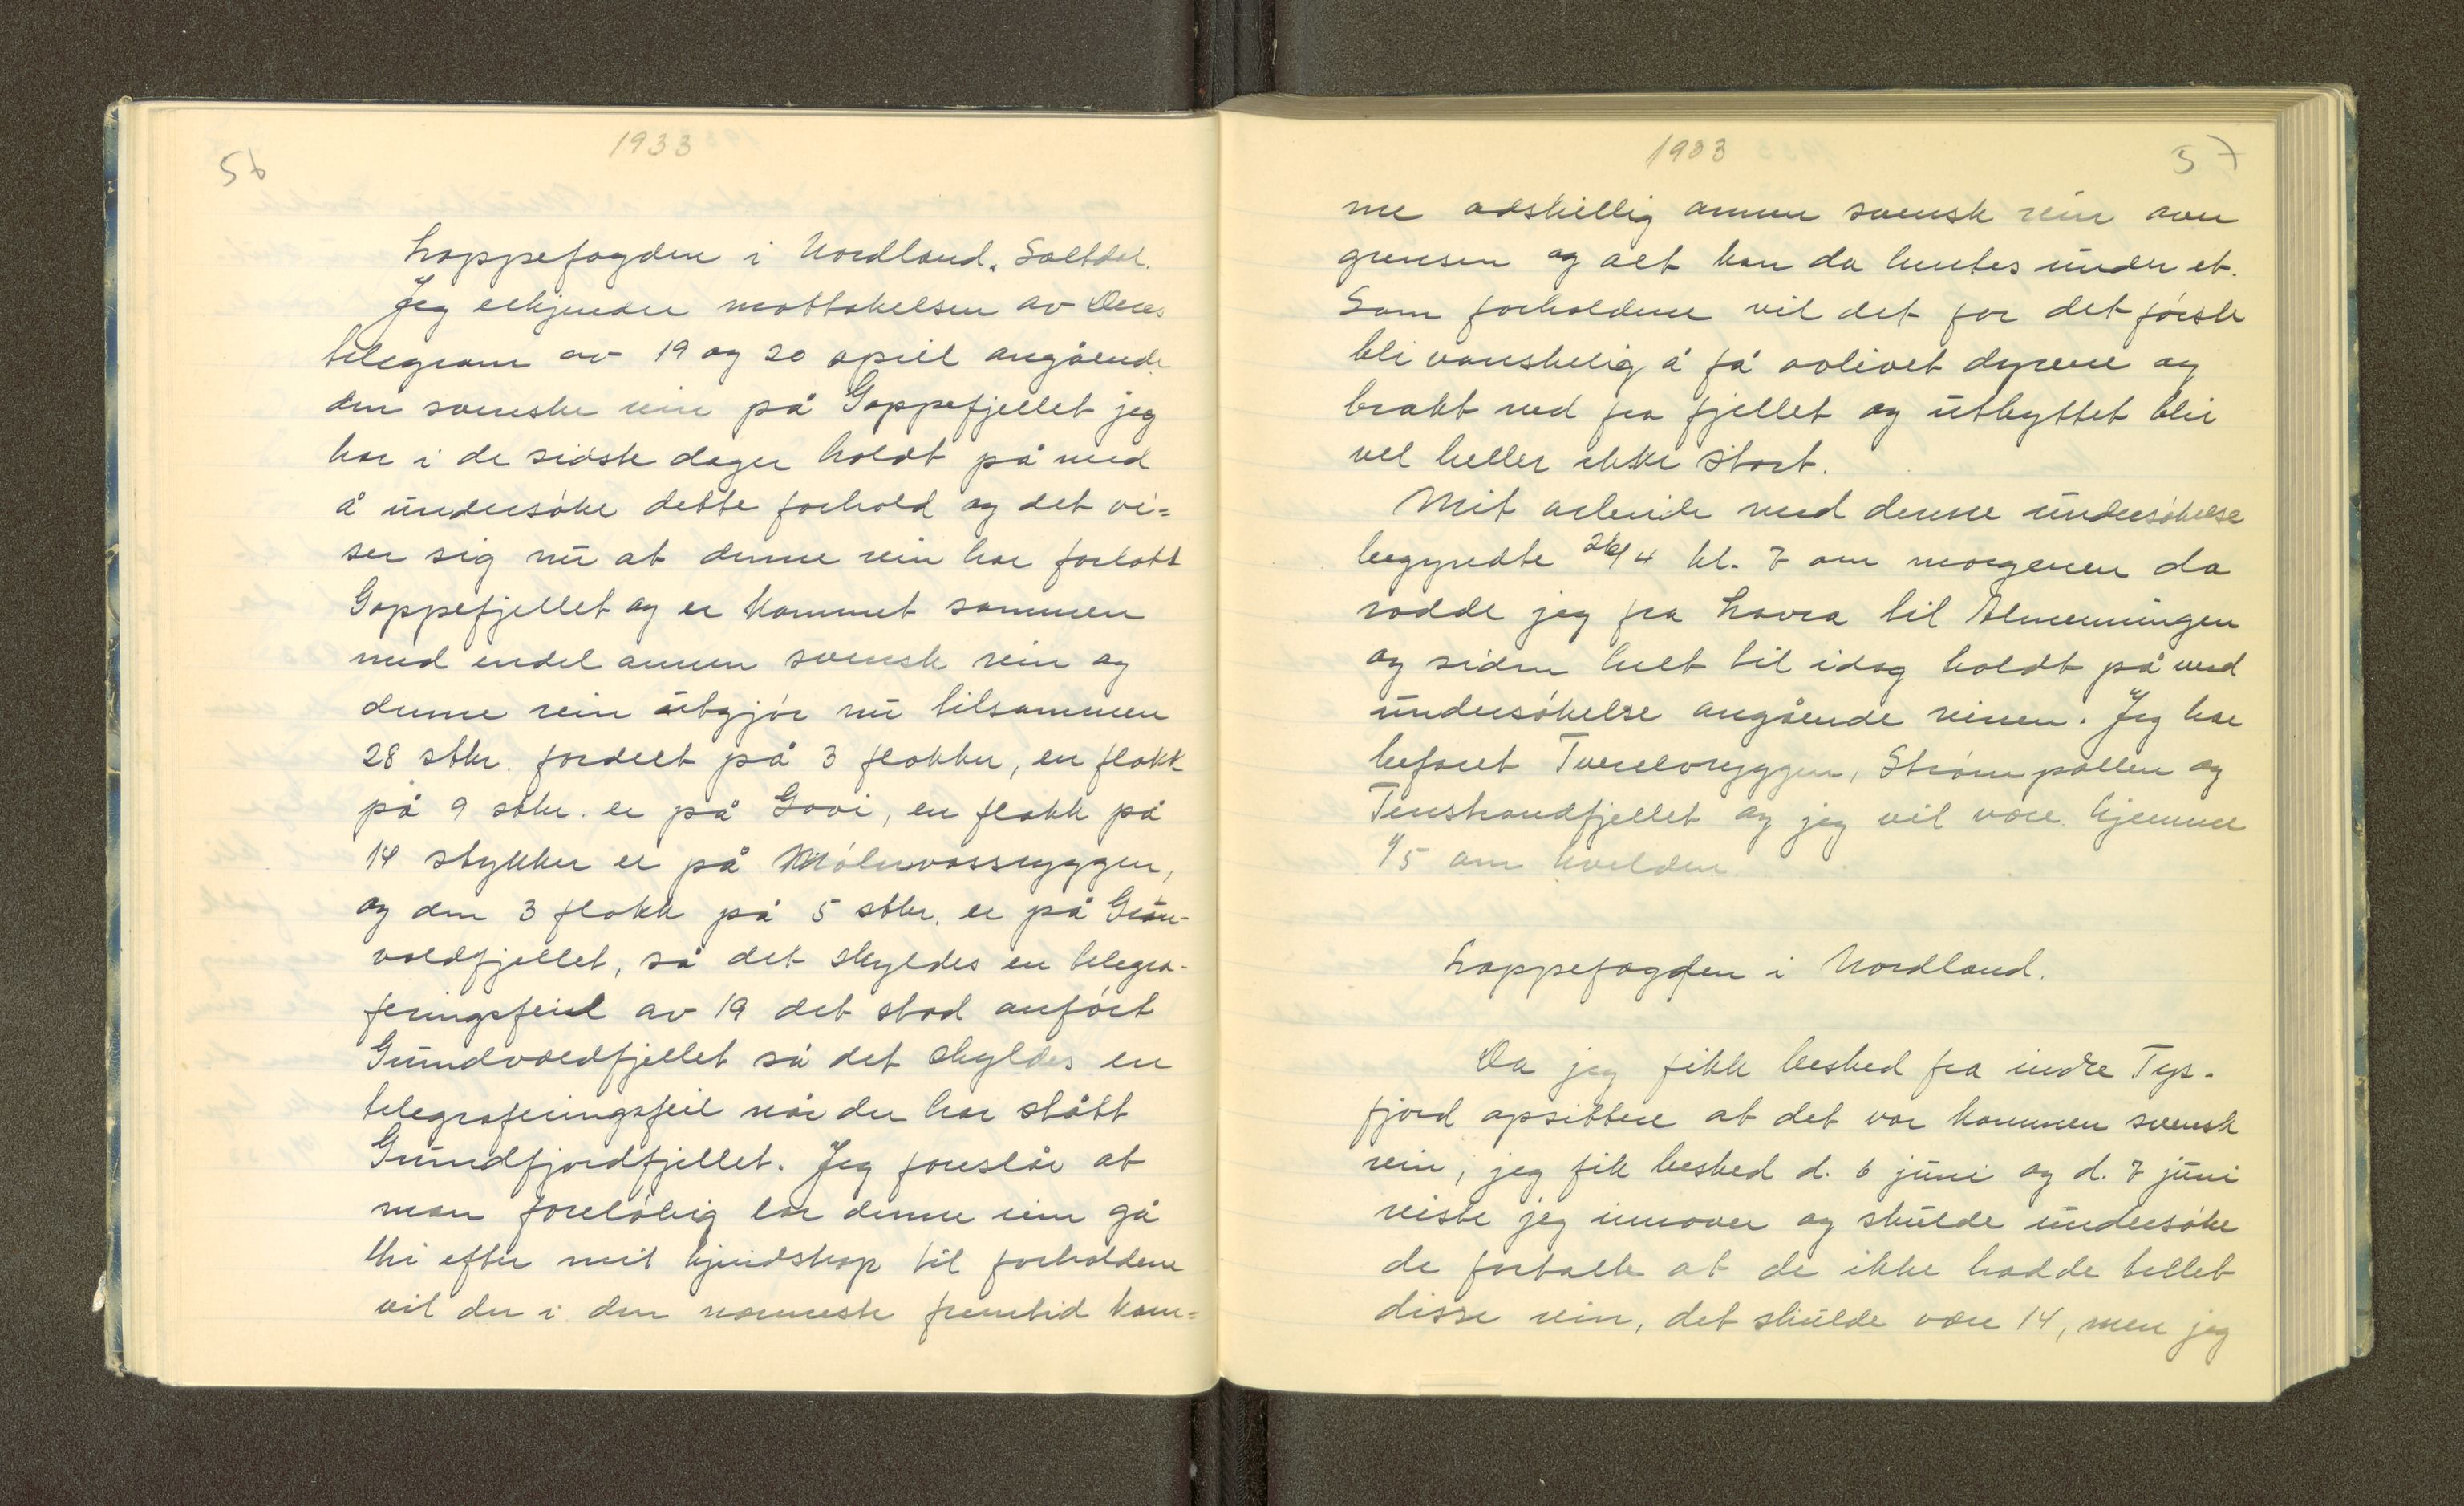 56
1933
Lappefogden i Nordland. Saltdal.
Jeg erkjender mottakelsen av Deres
telegram av 19 og 20 april angående
den svenske rein på Gappefjellet jeg
har i de sidste dager holdt på med
å undersøke dette forhold og det vi=
ser sig nu at denne rein har forlatt
Gappefjellet og er kommet sammen
med endel annen svensk rein og
denne rein utgjør nu tilsammen
28 stkr. fordelt på 3 flokker, en flokk
på 9 stkr. er på Govi, en flokk på
14 stykker er på Mølnvassryggen,
og den 3 flokk på 5 stkr. er på Grün-
voldfjellet, så det skyldes en telegra-
feringsfeil av 19 det stod anført
Gründvoldfjellet så det skyldes en
telegraferingsfeil når der har stått
Grundfjordfjellet. Jeg foreslår at
man foreløbig lar denne rein gå
thi efter mit kjendskap til forholdene
vil der i den nærmeste fremtid kom=
1933
57
me adskillig annen svensk rein over
grensen og alt kan da hentes under et.
Som forholdene vil det for det første
bli vanskelig å få avlivet dyrene og
brakt ned fra fjellet og utbyttet blir
vel heller ikke stort.
Mit arbeide med denne undersøkelse
begyndte 26/4 kl. 7 om morgenen da
rodde jeg fra Lavra til Almenningen
og siden helt til idag holdt på med
undersøkelse angående reinen. Jeg har
befaret Tverelvryggen, Strømpollen og
Tenstrandfjellet og jeg vil være hjemme
1/5 om kvelden
Lappefogden i Nordland.
Da jeg fikk besked fra indre Tys-
fjord opsittere at det var kommen svensk
rein, jeg fik besked d. 6 juni og d. 7 juni
reiste jeg innover og skulde undersøke
de fortalte at de ikke hadde tellet
disse rein, det skulde være 14, men jeg